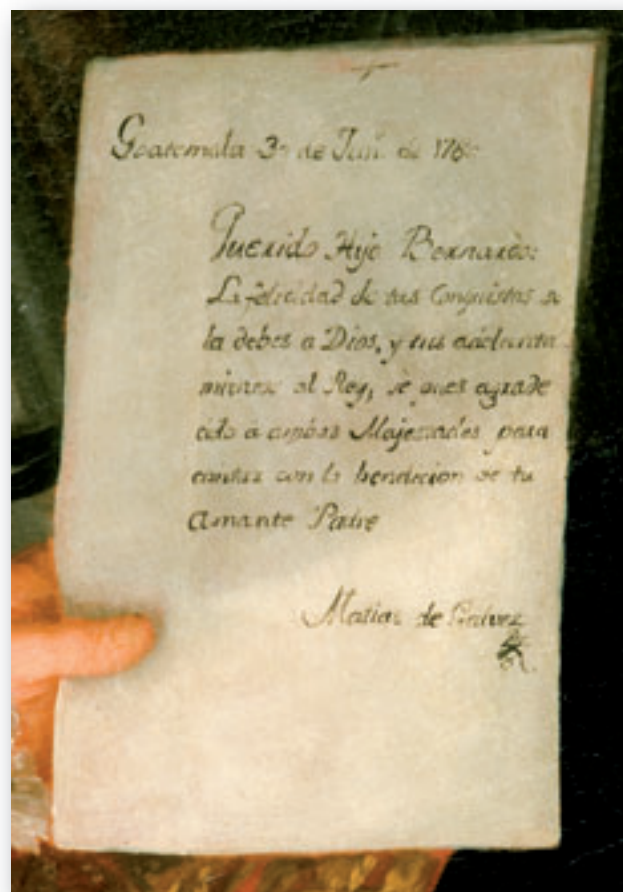 Goatemala 30 de Jun.º de 178
Querido Hijo Bernardo:
La felicidad de tus Conquistas
la debes a Dios, y tus adelanta
mientos al Rey, sé pues agrade
cido á ambas Majestades para
contar con la bendicion de tu
Amante Padre
Matias de Galvez